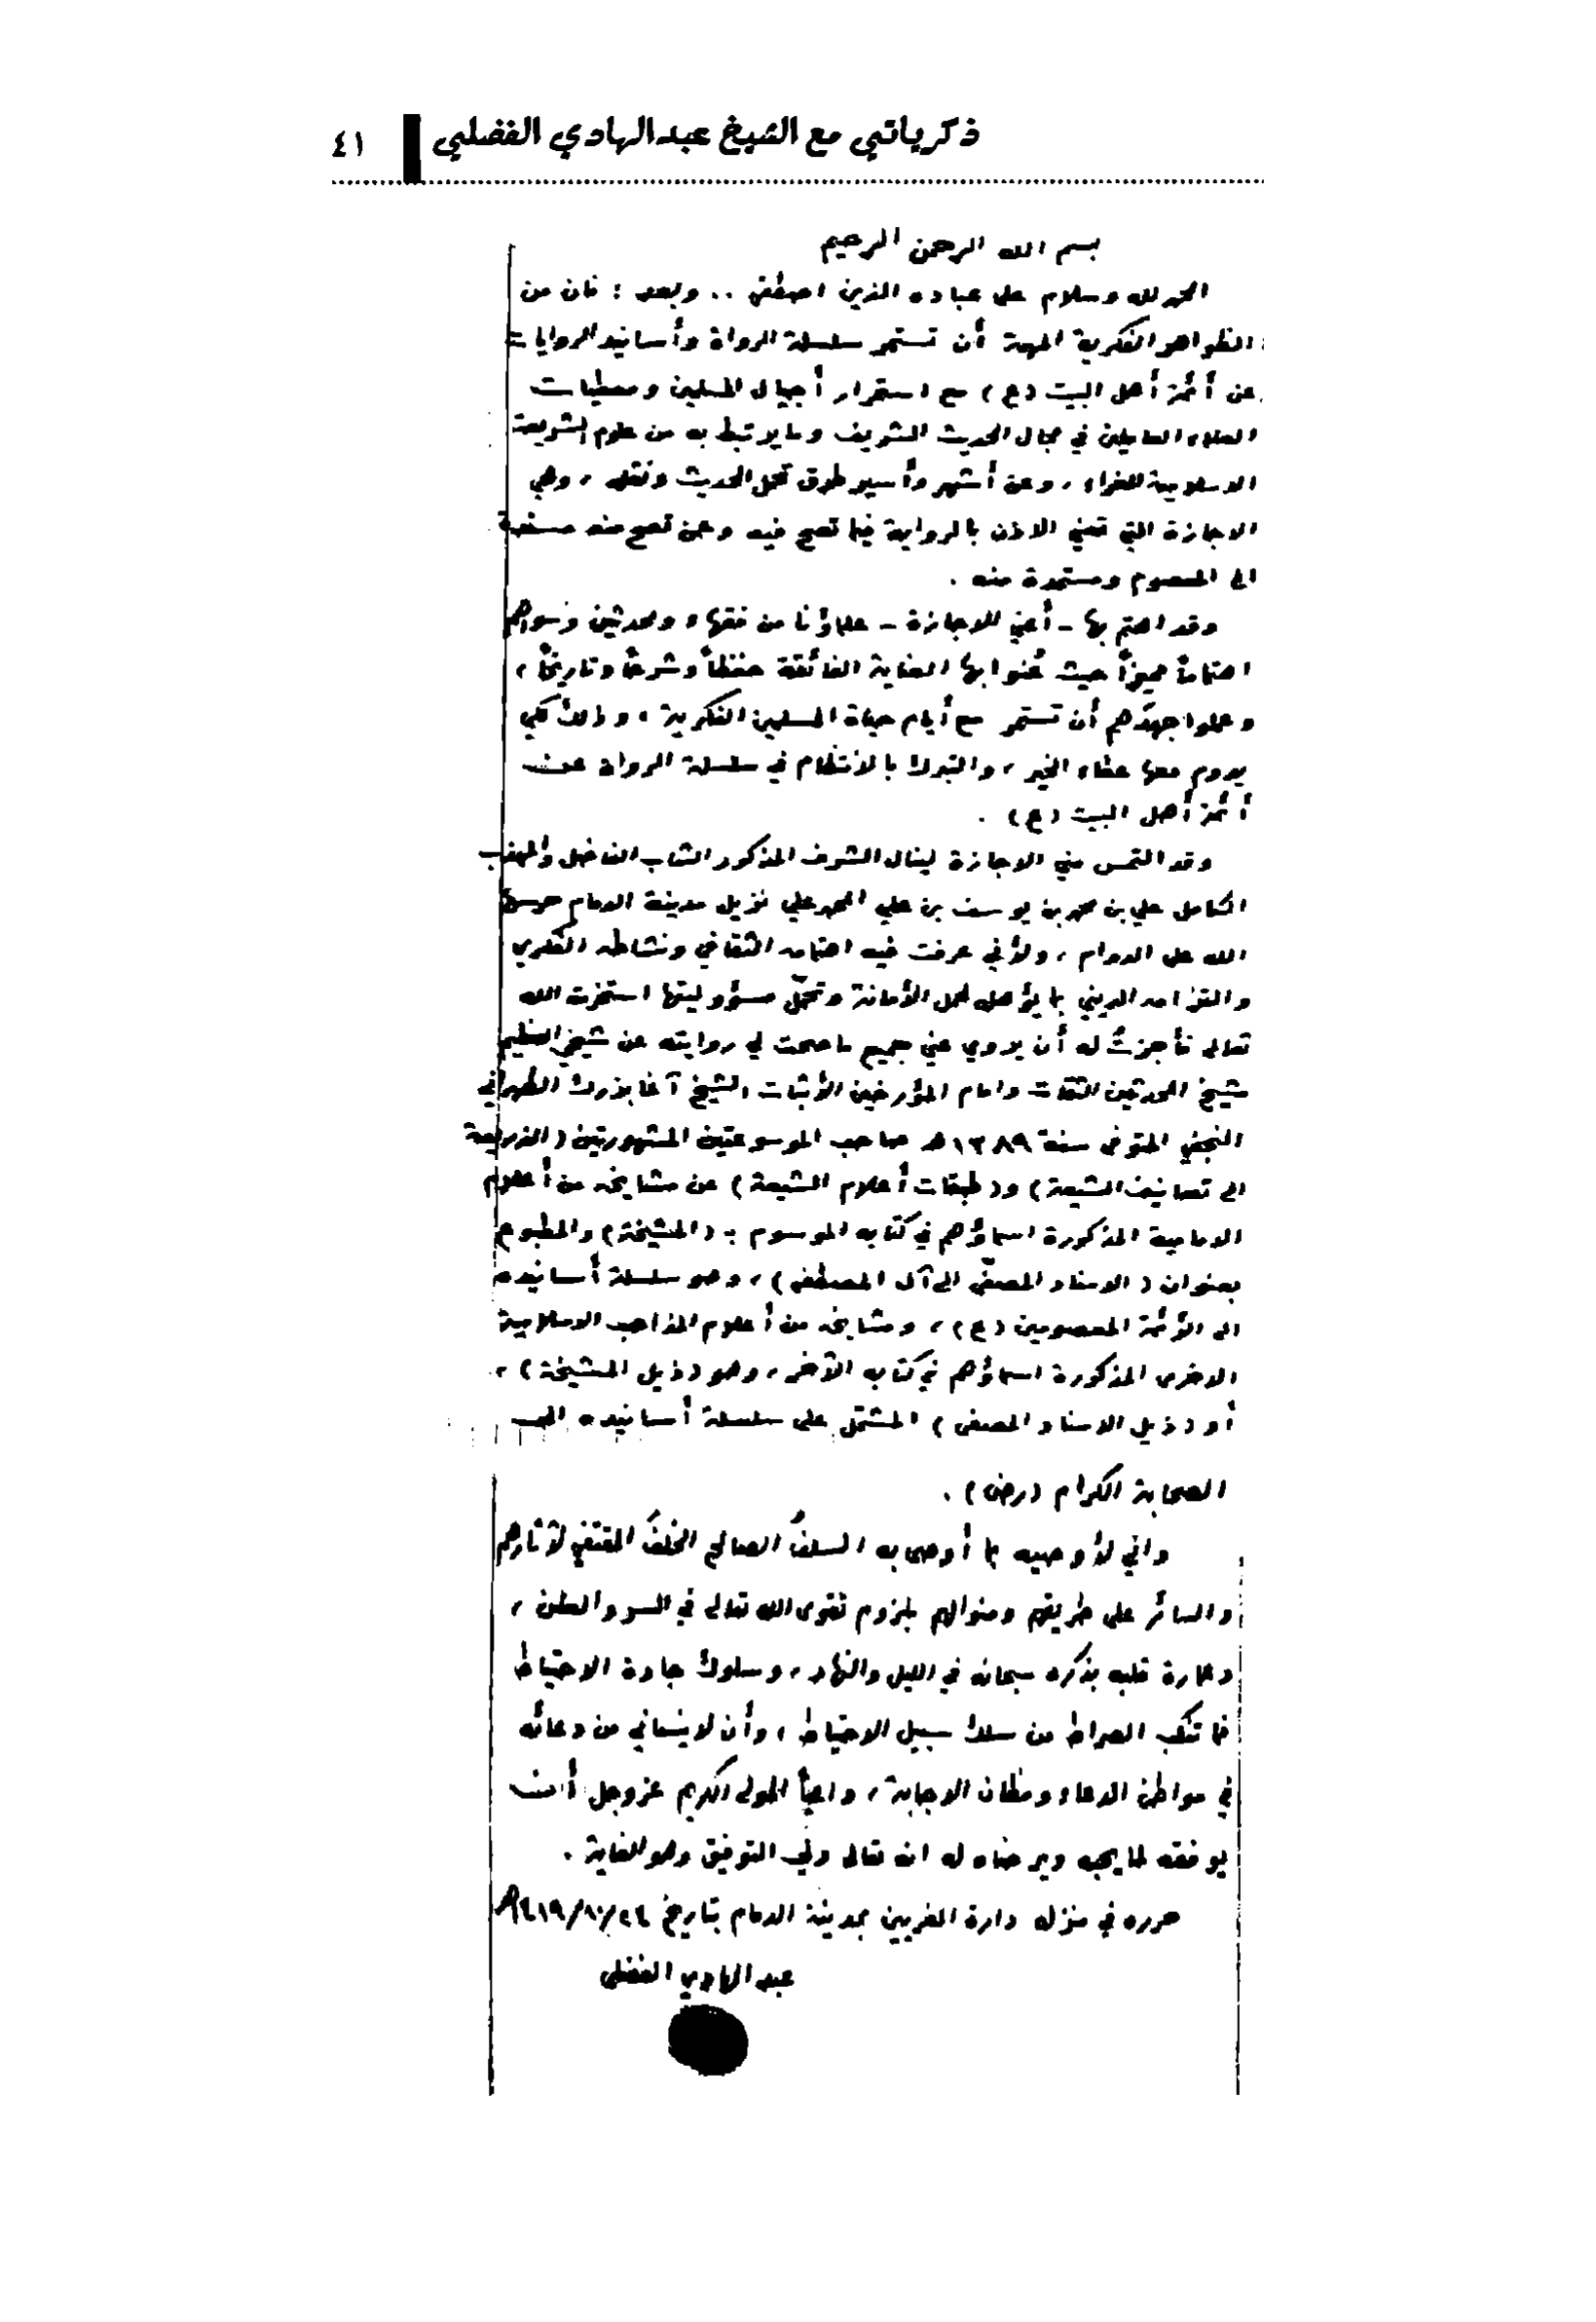 ذكرياتي مع الشيخ عبدالهادي الفضلي ٤١
بسم الله الرحمن الرحيم
الحمد لله وسلام على عباده الذين اصطفى .. وبعد : فان من
الظواهر الفكرية المهمة أن تستمر سلسلة الرواة وأسانيد الروايات
عن أئمة أهل البيت (ع) مع استمرار أجيال المسلمين ومعطيات
العلماء العاملين في مجال الحديث الشريف وما يرتبط به من علوم الشريعة
الاسلامية الغراء ، وعن أشهر وأسير طرق تحمل الحديث ونقله ، وهي
الاجازة التي تعني الاذن بالرواية فيما تصح فيه وعمن تصح منه مسندة
الى المعصوم ومستمدة منه .
وقد اهتم بها - أعني الاجازة - علماؤنا من فقهاء ومحدثين وسواهم
اهتماماً مميزاً حيث عُنوا بها العناية الفائقة حفظاً وشرعاً وتاريخاً ،
وعملوا جهدهم أن تستمر مع أيام حياة المسلمين الفكرية ، وذلك لكي
يدوم معها عطاء الخير ، والتبرك بالانتظام في سلسلة الرواة عن
أئمة أهل البيت (ع) .
وقد التمس مني الاجازة لينال الشرف المذكور الشاب الفاضل والمهذب
الكامل علي بن محمد بن يوسف بن علي المحمد علي نزيل مدينة الدمام حرسها
الله على الدوام ، ولأني عرفت فيه اهتمامه الثقافي ونشاطه الفكري
والتزامه الديني بما يؤهله لحمل الأمانة وتحمّل مسؤوليتها استخرت الله
تعالى فأجزتُ له أن يروي عني جميع ما صحت لي روايته عن شيخي العظيم
شيخ المحدثين الثقات وامام المؤرخين الأثبات الشيخ آغا بزرك الطهراني
النجفي المتوفى سنة ١٣٨٩هـ صاحب الموسوعتين المشهورتين (الذريعة
الى تصانيف الشيعة) و(طبقات أعلام الشيعة) عن مشايخه من أعلام
الامامية المذكورة اسماؤهم في كتابه الموسوم بـ (المشيخة) والمطبوع
بعنوان (الاسناد المصفّى الى آل المصطفى) ، وهو سلسلة أسانيده
الى الأئمة المعصومين (ع) ، ومشايخه من أعلام المذاهب الاسلامية
الاخرى المذكورة اسماؤهم في كتابه الآخر ، وهو (ذيل المشيخة) ،
أو (ذيل الاسناد المصفى) المشتمل على سلسلة أسانيده الى
الصحابة الكرام (رض) .
واني لأوصيه بما أوصى به السلفُ الصالح الخلفَ المقتفي لآثارهم
والسائر على طريقهم ومنوالهم بلزوم تقوى الله تعالى في السر والعلن ،
وعمارة قلبه بذكره سبحانه في الليل والنهار ، وسلوك جادة الاحتياط
فما تنكب الصراط من سلك سبيل الاحتياط ، وأن لا ينساني من دعائه
في مواطن الدعاء ومظان الاجابة ، داعياً المولى الكريم عز وجل أن
يوفقه لما يحبه ويرضاه له انه تعالى ولي التوفيق وهو الغاية .
حرره في منزله دارة الغريين بمدينة الدمام بتاريخ ٢٤/١٠/١٤١٩هـ
عبد الهادي الفضلي